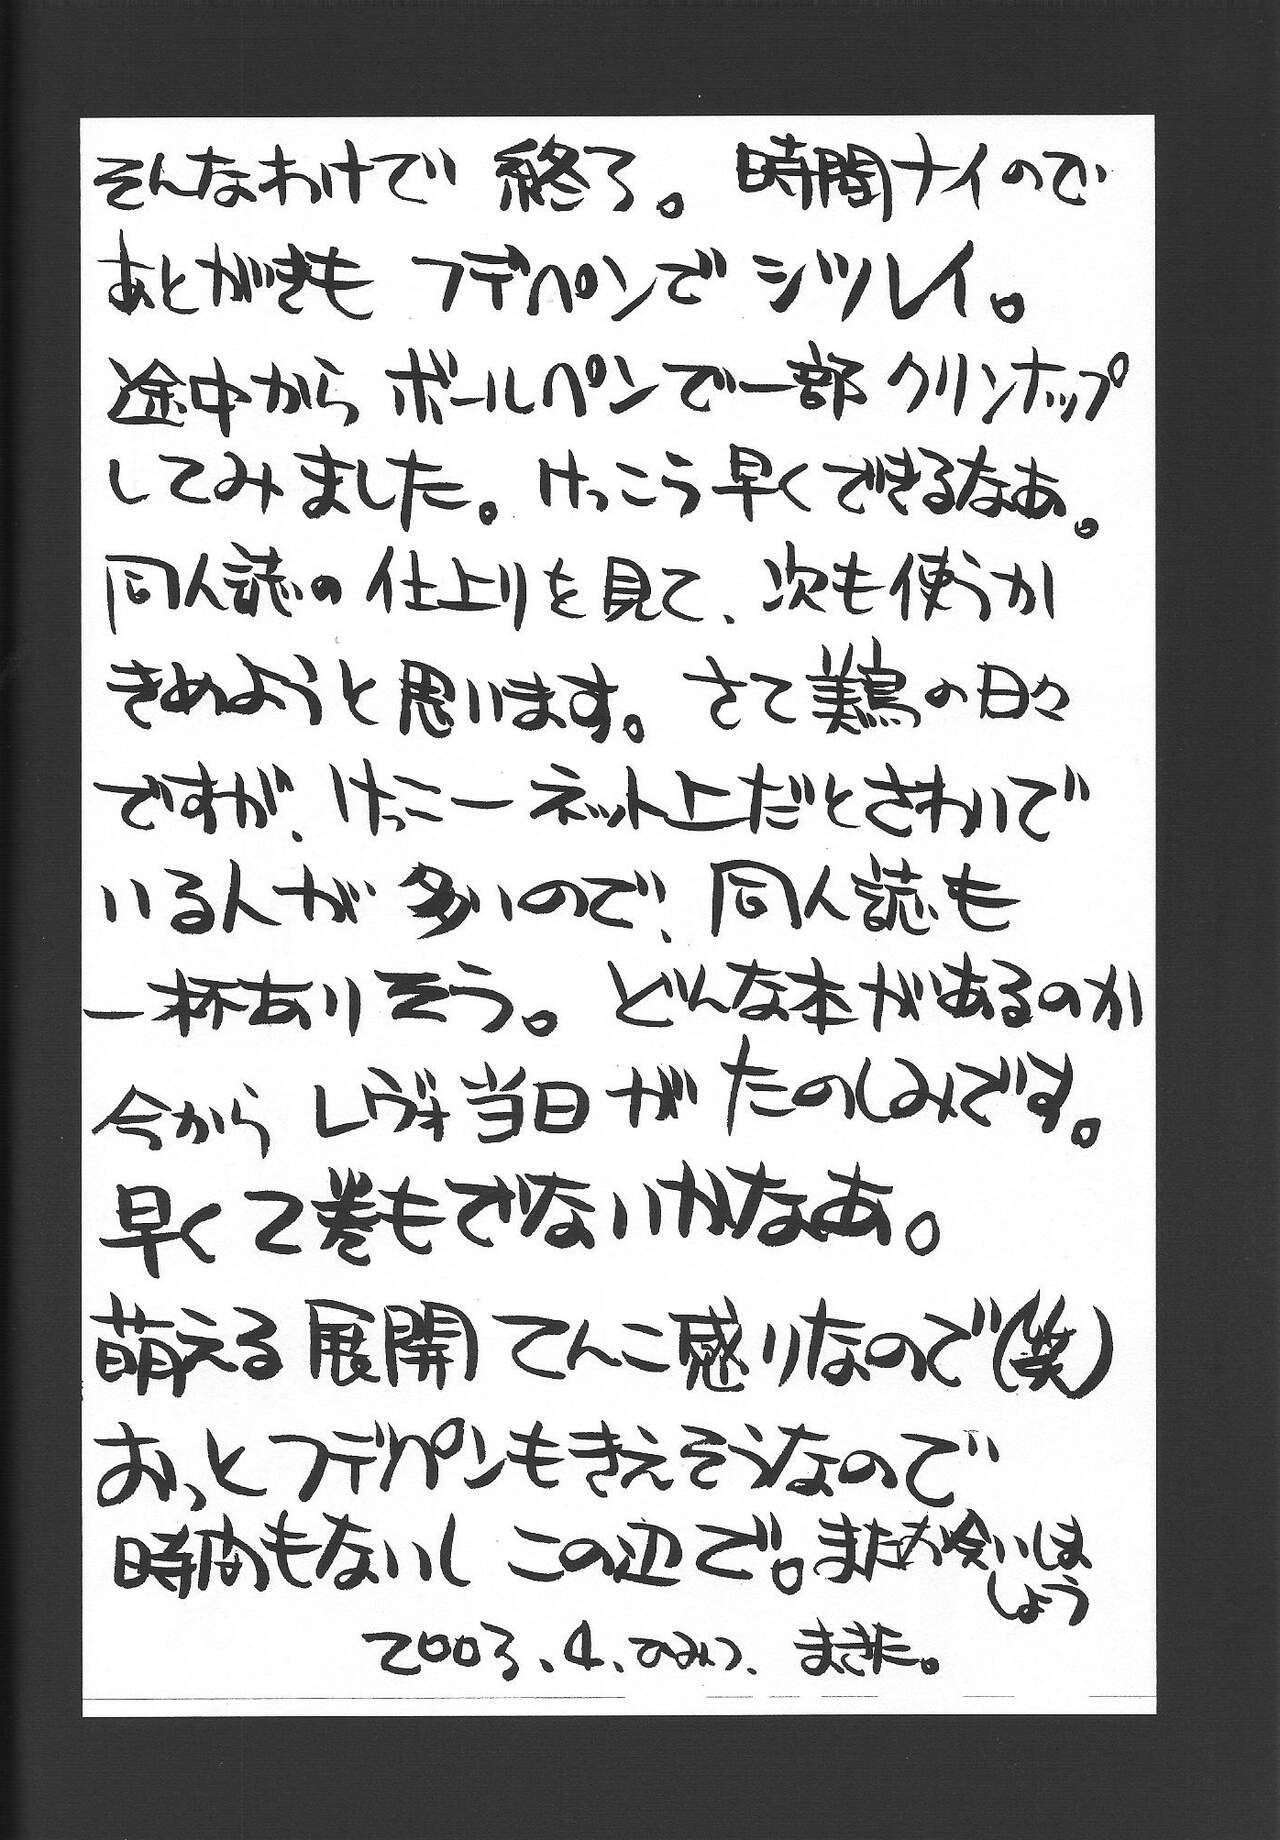 そんなわけで 終了。 時間ナイので
あとがきも フデペンで シツレイ。
途中から ボールペンで一部 クリンナップ
してみました。けっこう早くできるなあ。
同人誌の仕上りを見て、次も使うか
きめようと思います。さて美鳥の日々
ですが、けっこーネット上だとさわいで
いる人が多いので、同人誌も
一杯ありそう。どんな本があるのか
今から レヴォ当日が たのしみです。
早く2巻もでないかなあ。
萌える展開てんこ盛りなので(笑)
おっとフデペンもきえそうなので
時間もないし この辺で。またお会いしま
しょう
2003.4.ひみつ. まきた。